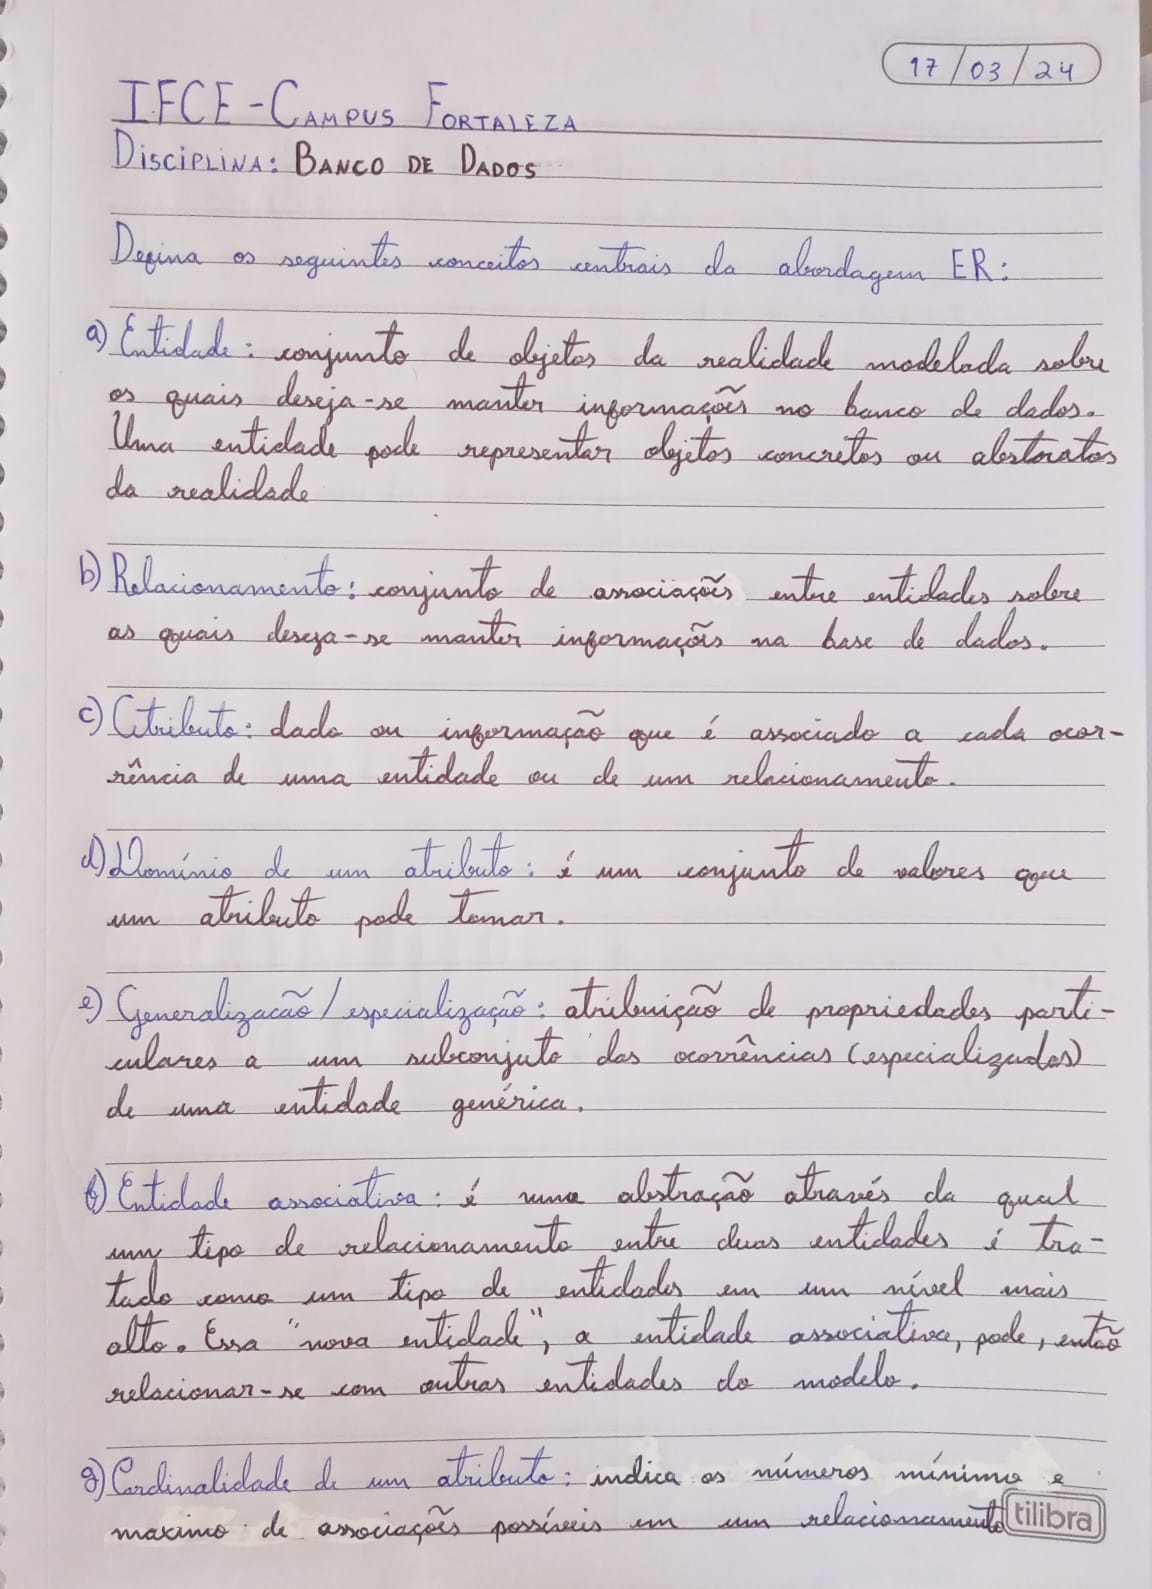 17/03/24
IFCE - CAMPUS FORTALEZA
DISCIPLINA: BANCO DE DADOS
Defina os seguintes conceitos centrais da abordagem ER:
a) Entidade: conjunto de objetos da realidade modelada sobre
os quais deseja-se manter informações no banco de dados.
Uma entidade pode representar objetos concretos ou abstratos
da realidade
b) Relacionamento: conjunto de associações entre entidades sobre
as quais deseja-se manter informações na base de dados.
c) Atributo: dado ou informação que é associado a cada ocor-
rência de uma entidade ou de um relacionamento.
d) Domínio de um atributo: é um conjunto de valores que
um atributo pode tomar.
e) Generalizacão/especialização: atribuição de propriedades parti-
culares a um subconjuto das ocorrências (especializadas)
de uma entidade genérica.
f) Entidade associativa: é uma abstração através da qual
um tipo de relacionamento entre duas entidades é tra-
tado como um tipo de entidades em um nível mais
alto. Essa "nova entidade", a entidade associativa, pode, então
relacionar-se com outras entidades do modelo.
g) Cardinalidade de um atributo: indica os números mínimo e
maximo de associações possíveis em um relacionamento
tilibra